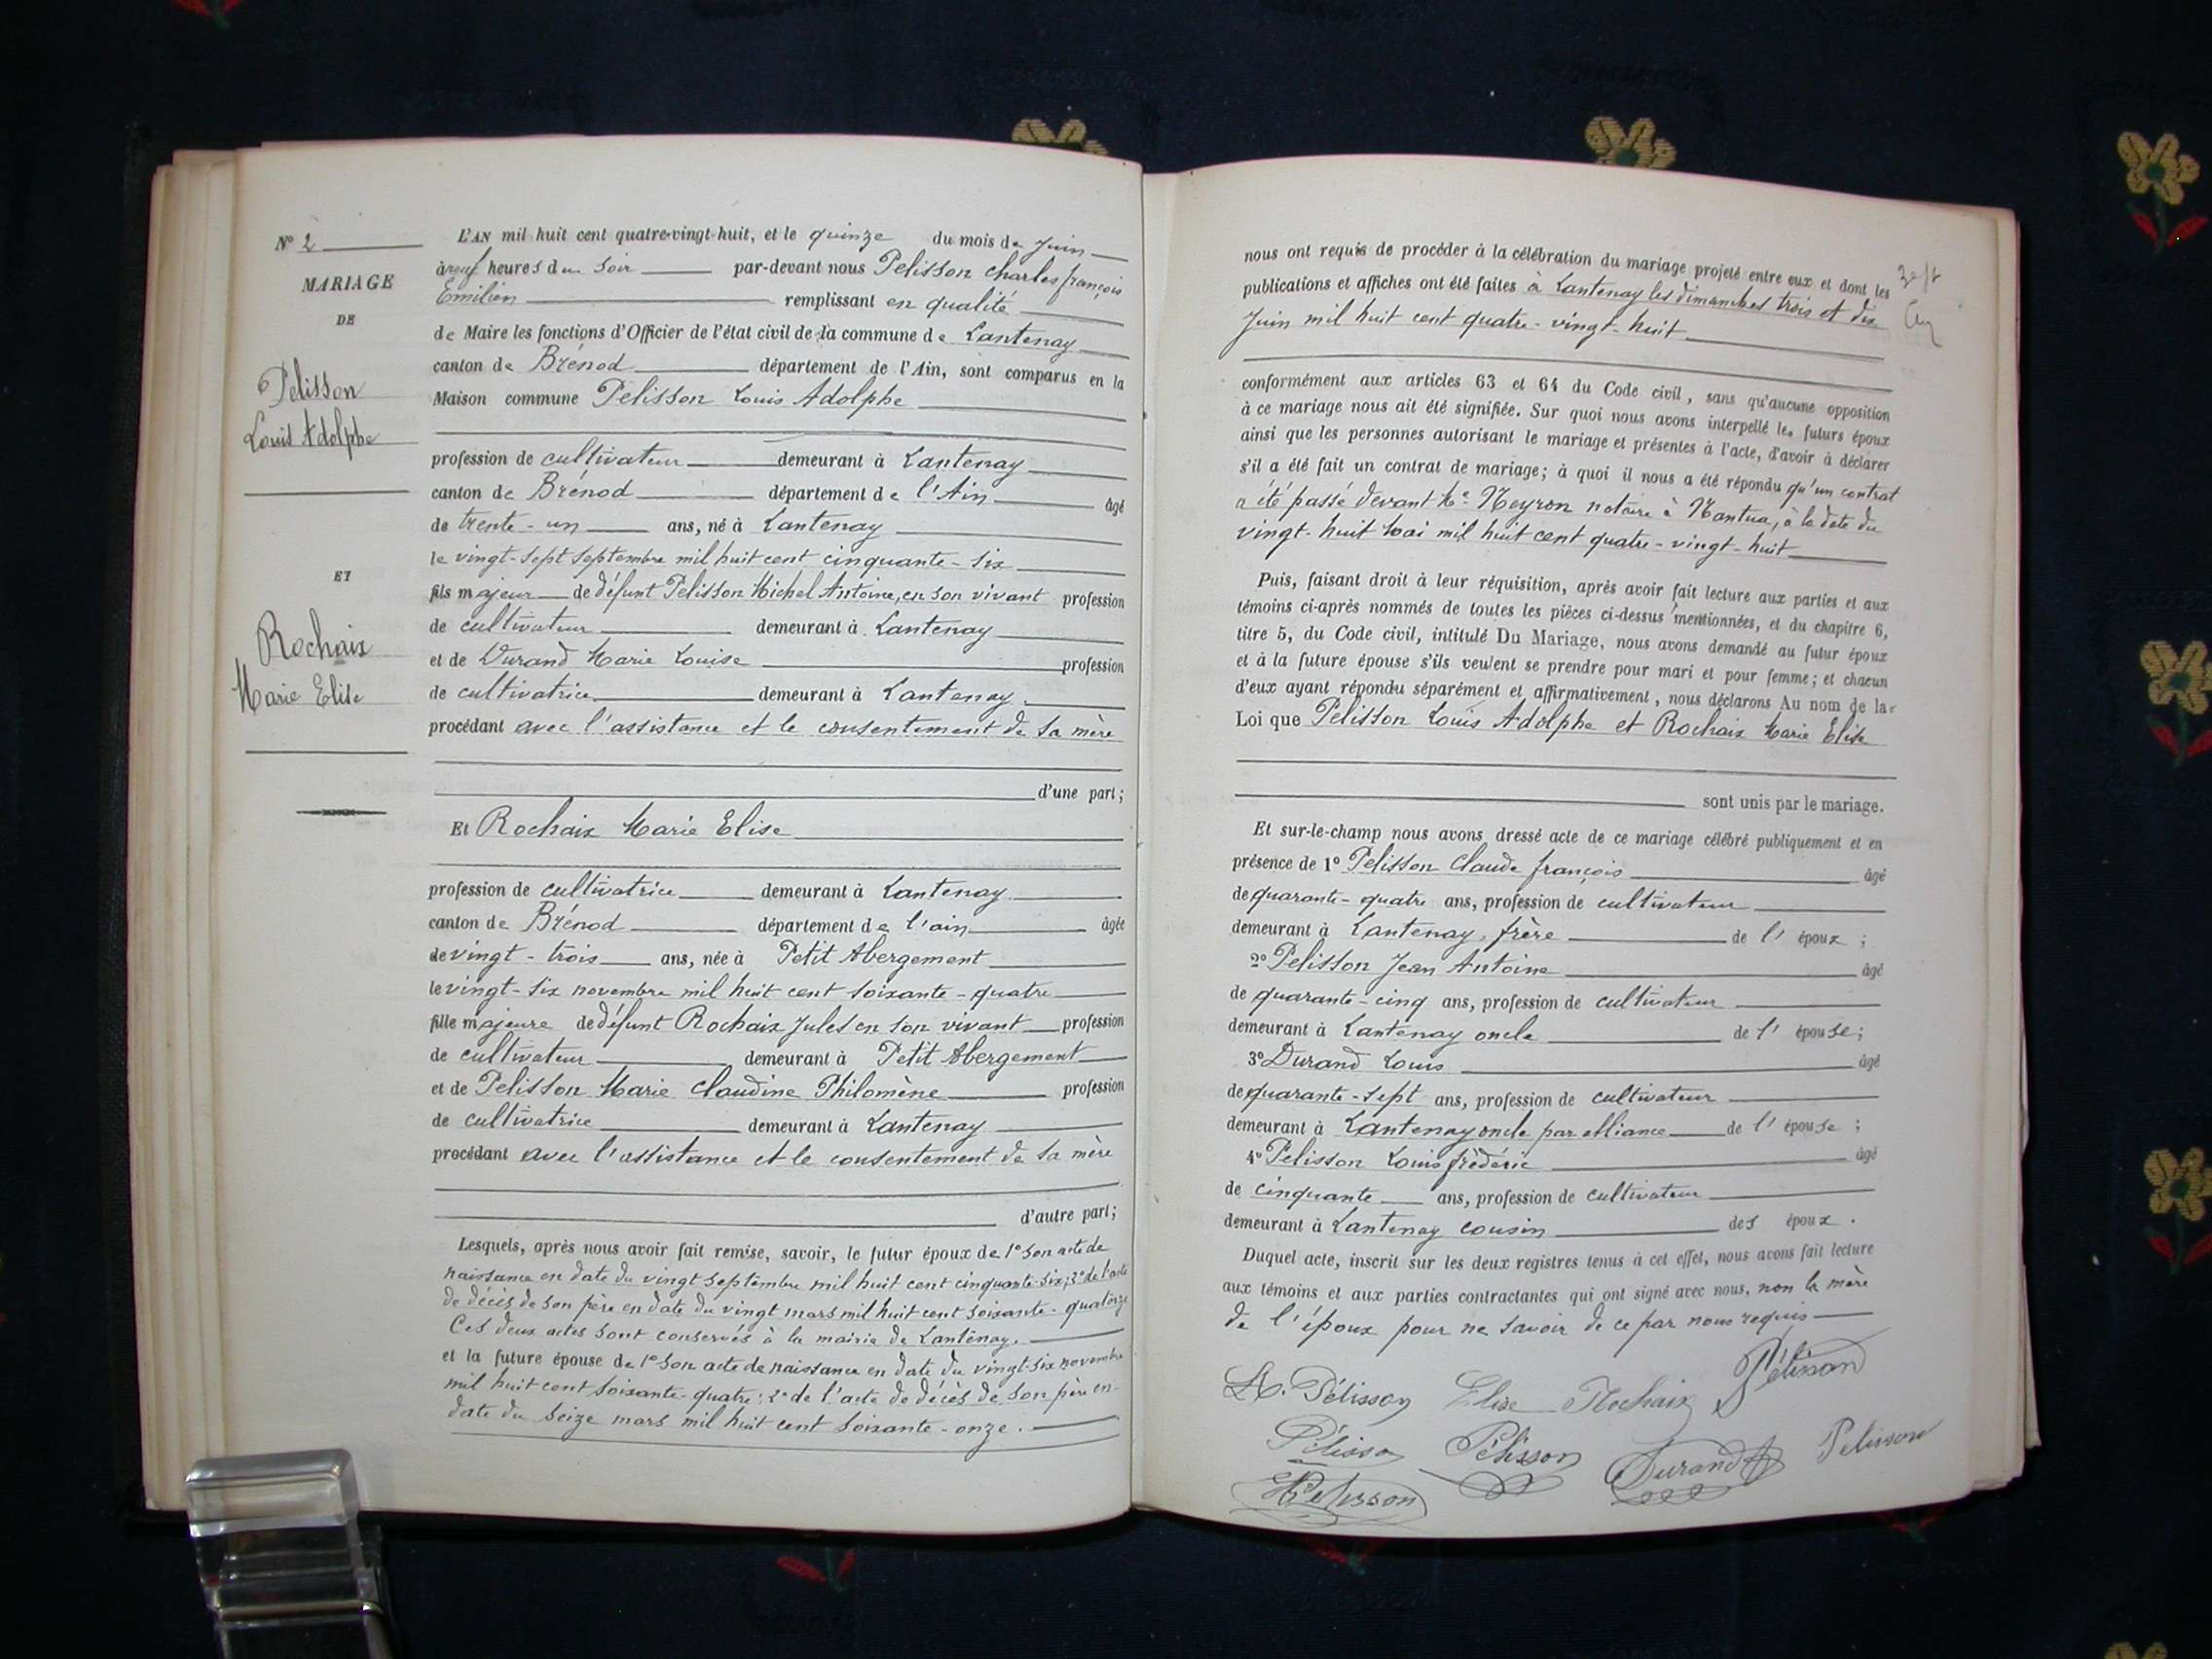 N° 2
MARIAGE
DE
Pelisson
Louis Adolphe
ET
Rochaix
Marie Elise
L'AN mil huit cent quatre-vingt-huit, et le quinze du mois de Juin
à neuf heures du soir par-devant nous Pelisson Charles françois
Emilien remplissant en qualité
de Maire les fonctions d'Officier de l'état civil de la commune de Lantenay
canton de Brénod département de l'Ain, sont comparus en la
Maison commune Pelisson Louis Adolphe
profession de cultivateur demeurant à Lantenay
canton de Brénod département de l'Ain âgé
de trente-un ans, né à Lantenay
le vingt-sept septembre mil huit cent cinquante-six
fils majeur de défunt Pelisson Michel Antoine, en son vivant profession
de cultivateur demeurant à Lantenay
et de Durand Marie Louise profession
de cultivatrice demeurant à Lantenay
procédant avec l'assistance et le consentement de sa mère
d'une part;
Et Rochaix Marie Elise
profession de cultivatrice demeurant à Lantenay
canton de Brénod département de l'ain âgée
de vingt-trois ans, née à Petit Abergement
le vingt-six novembre mil huit cent soixante-quatre
fille majeure de défunt Rochaix Jules en son vivant profession
de cultivateur demeurant à Petit Abergement
et de Pelisson Marie Claudine Philomène profession
de cultivatrice demeurant à Lantenay
procédant avec l'assistance et le consentement de sa mère
d'autre part;
Lesquels, après nous avoir fait remise, savoir, le futur époux de 1° son acte de
naissance en date du vingt septembre mil huit cent cinquante-six; 2° de l'acte
de décès de son père en date du vingt mars mil huit cent soixante-quatorze
Ces deux actes sont conservés à la mairie de Lantenay.
et la future épouse de 1° son acte de naissance en date du vingt-six novembre
mil huit cent soixante-quatre; 2° de l'acte de décès de son père en
date du seize mars mil huit cent soixante-onze.
nous ont requis de procéder à la célébration du mariage projeté entre eux et dont les
publications et affiches ont été faites à Lantenay les dimanches trois et dix
Juin mil huit cent quatre-vingt-huit
conformément aux articles 63 et 64 du Code civil, sans qu'aucune opposition
à ce mariage nous ait été signifiée. Sur quoi nous avons interpellé les futurs époux
ainsi que les personnes autorisant le mariage et présentes à l'acte, d'avoir à déclarer
s'il a été fait un contrat de mariage; à quoi il nous a été répondu qu'un contrat
a été passé devant Me Neyron notaire à Nantua, à la date du
vingt-huit Mai mil huit cent quatre-vingt-huit
Puis, faisant droit à leur réquisition, après avoir fait lecture aux parties et aux
témoins ci-après nommés de toutes les pièces ci-dessus mentionnées, et du chapitre 6,
titre 5, du Code civil, intitulé Du Mariage, nous avons demandé au futur époux
et à la future épouse s'ils veulent se prendre pour mari et pour femme; et chacun
d'eux ayant répondu séparément et affirmativement, nous déclarons Au nom de la
Loi que Pelisson Louis Adolphe et Rochaix Marie Elise
sont unis par le mariage.
Et sur-le-champ nous avons dressé acte de ce mariage célébré publiquement et en
présence de 1° Pelisson Claude françois âgé
de quarante-quatre ans, profession de cultivateur
demeurant à Lantenay, frère de l'époux;
2° Pelisson Jean Antoine âgé
de quarante-cinq ans, profession de cultivateur
demeurant à Lantenay oncle de l'épouse;
3° Durand Louis âgé
de quarante-sept ans, profession de cultivateur
demeurant à Lantenay oncle par alliance de l'épouse;
4° Pelisson Louis frédéric âgé
de cinquante ans, profession de cultivateur
demeurant à Lantenay cousin des époux.
Duquel acte, inscrit sur les deux registres tenus à cet effet, nous avons fait lecture
aux témoins et aux parties contractantes qui ont signé avec nous, non la mère
de l'époux pour ne savoir de ce par nous requis
A. Pélisson Elise Rochaix Pélisson
Pélisson Pélisson Durand Pelisson
Pelisson